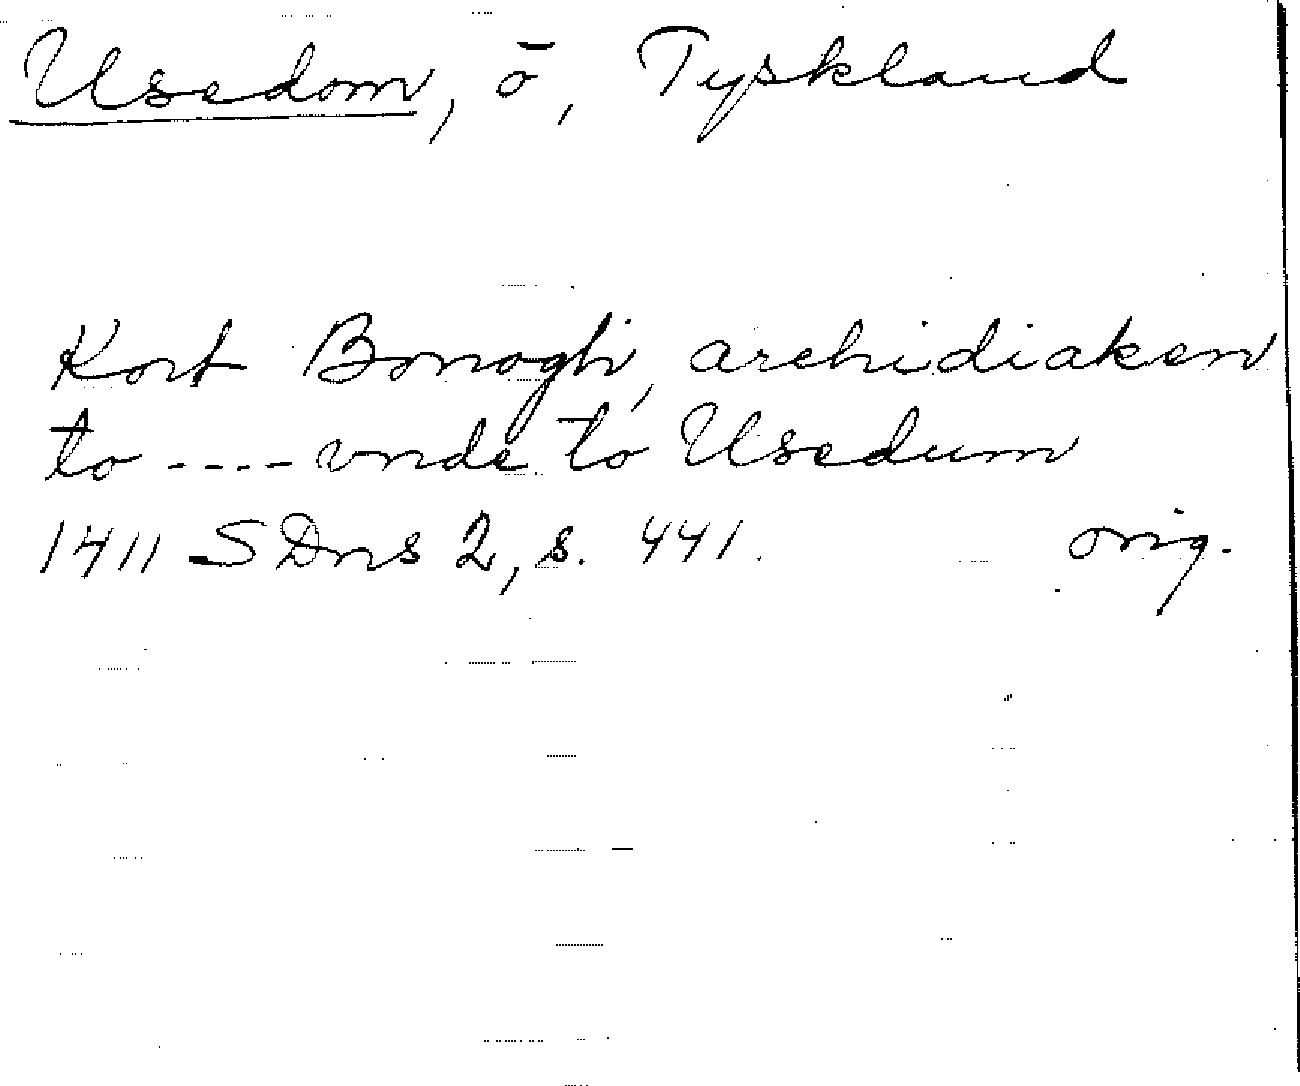 Usedom, ö, Tyskland
Kort Bonogh, archidiaken
to ---- vnde to Usedum
1411 SDns 2, s. 441. orig.